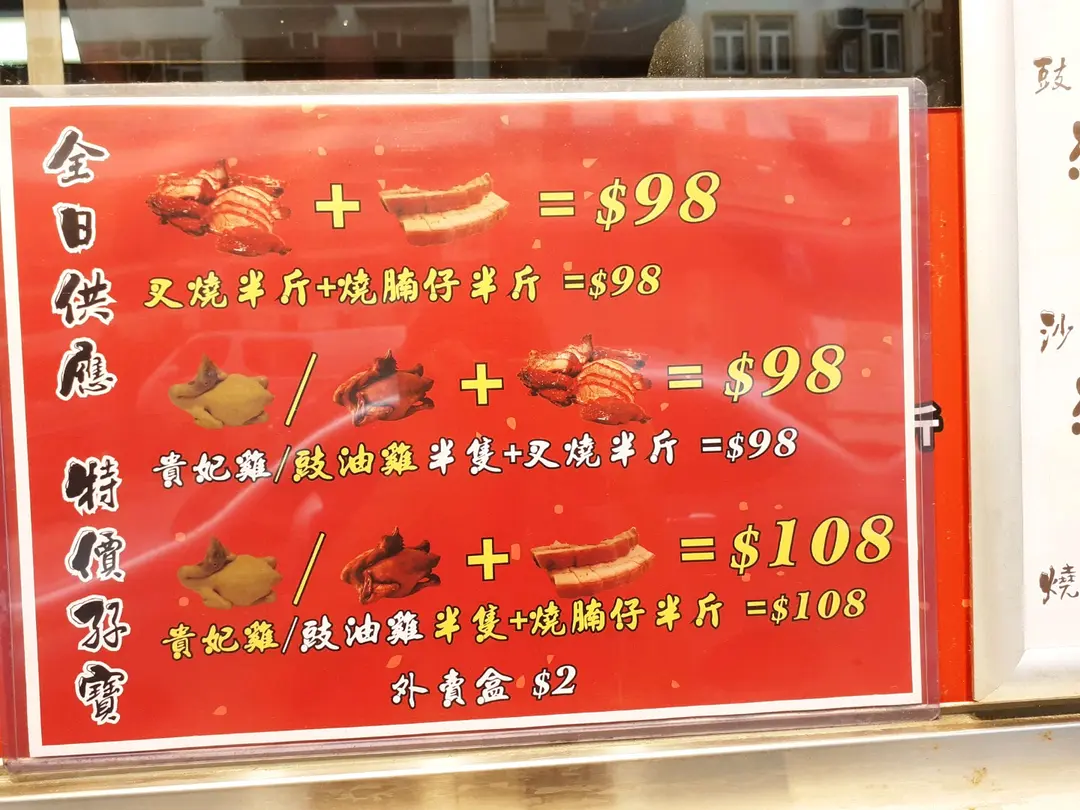 全日供應 特價孖寶
+ = $98
叉燒半斤+燒腩仔半斤 =$98
/ + = $98
貴妃雞/豉油雞半隻+叉燒半斤 =$98
/ + = $108
貴妃雞/豉油雞半隻+燒腩仔半斤 =$108
外賣盒 $2
斤
豉
沙
燒